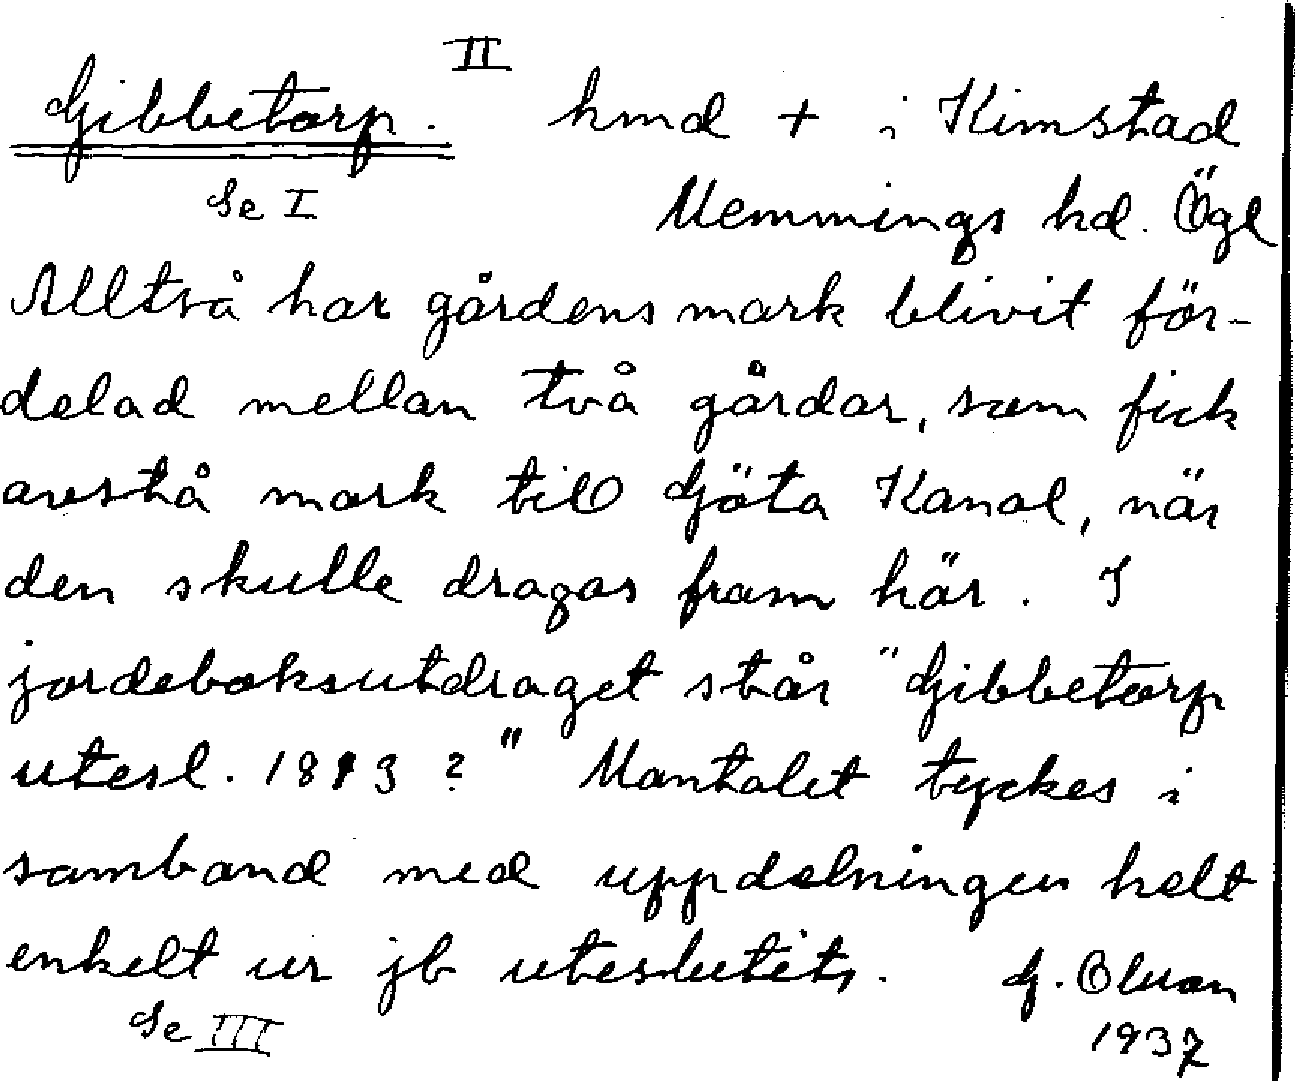 II
Gibbetorp. hmd + i Kimstad
Se I Memmings hd. Ögl
Alltså har gårdens mark blivit för-
delad mellan två gårdar, som fick
avstå mark till Göta Kanal, när
den skulle dragas fram här. I
jordeboksutdraget står "Gibbetorp
utesl. 1893 ?" Mantalet tyckes i
samband med uppdelningen helt
enkelt ur jb uteslutits. G.
Se III 1937